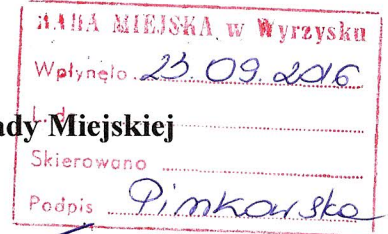 RADA MIEJSKA w Wyrzysku
Wpłynęło 23.09.2016
L.d.
ady Miejskiej
Skierowano
Podpis Pinkowska